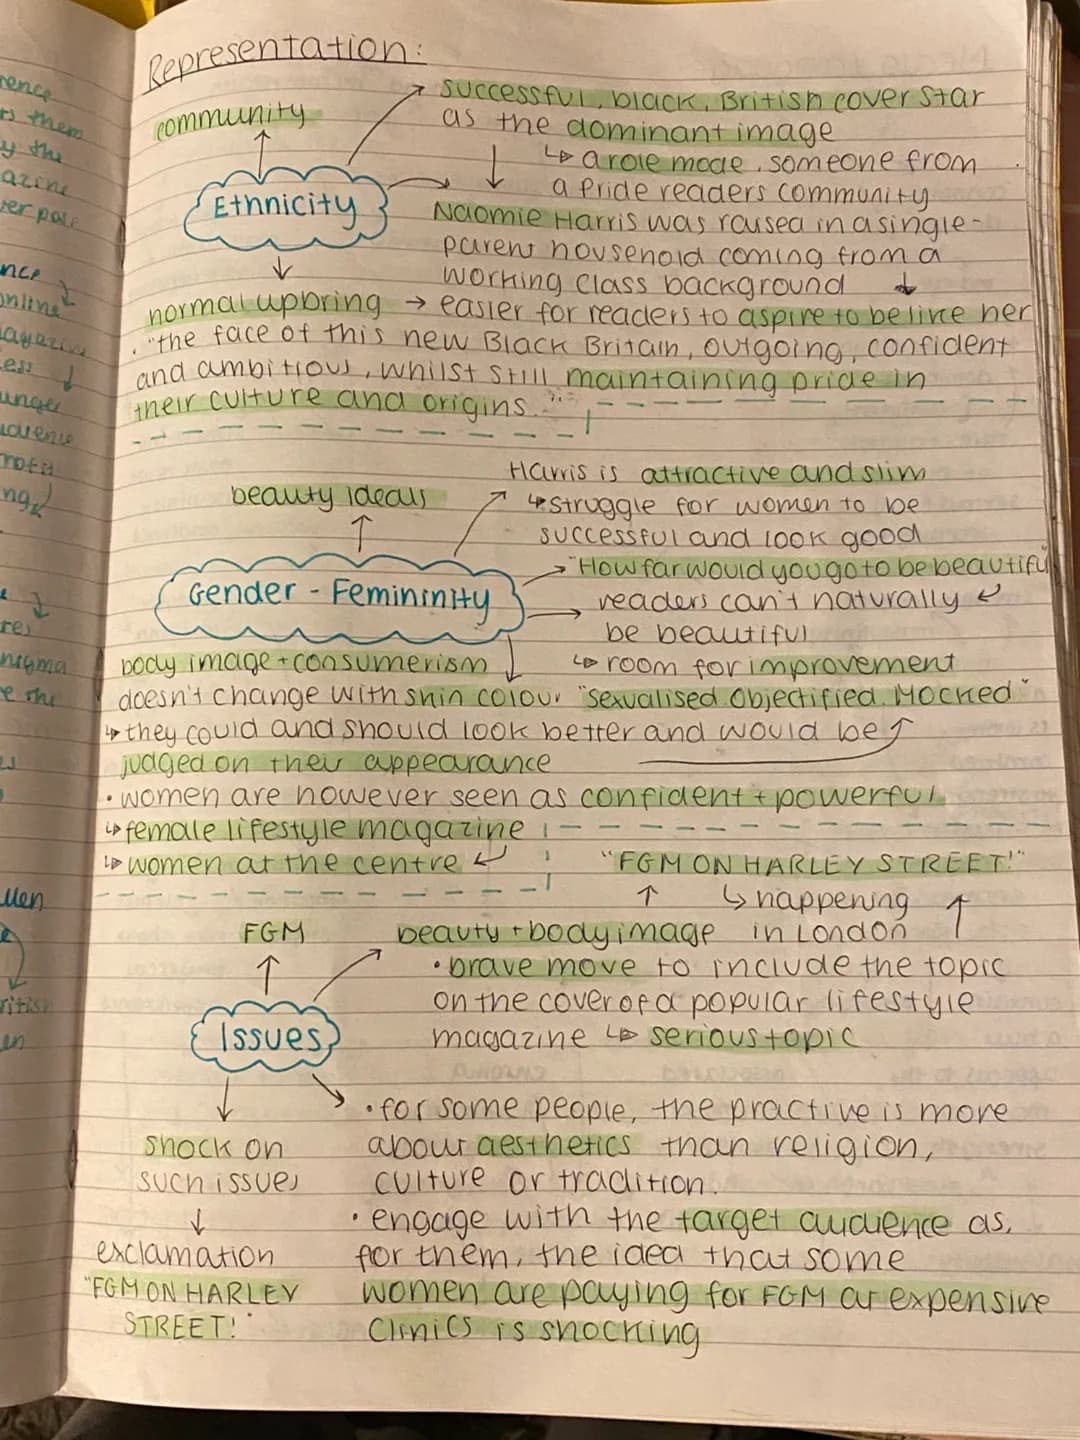 Representation:
community
successful, black, British cover star
as the dominant image
↳ a role mode, someone from
a Pride readers community
Ethnicity
Naomie Harris was raised in a single-
parent household coming from a
working class background
normal upbring → easier for readers to aspire to be like her
. "the face of this new Black Britain, outgoing, confident
and ambitious, whilst still maintaining pride in
their culture and origins."
Harris is attractive and slim
beauty ideals
↳ struggle for women to be
successful and look good
"How far would you go to be beautiful
Gender - Femininity
readers can't naturally
be beautiful
↳ room for improvement
body image + consumerism
doesn't change with skin colour "Sexualised. Objectified. Mocked"
↳ they could and should look better and would be
judged on their appearance
• women are however seen as confident + powerful
↳ female lifestyle magazine
↳ women at the centre
"FGM ON HARLEY STREET!"
↳ happening
in London
FGM
beauty + body image
• brave move to include the topic
on the cover of a popular lifestyle
magazine ↳ serious topic
Issues
• for some people, the practive is more
abour aesthetics than religion,
culture or tradition.
shock on
such issues
↓
exclamation
"FGM ON HARLEY
STREET!"
• engage with the target audience as,
for them, the idea that some
women are paying for FGM at expensive
clinics is shocking
rence
ts them
y the
azine
ver pole
nce
online
magazin
unger
ng
enigma
e the
Men
ritish
en